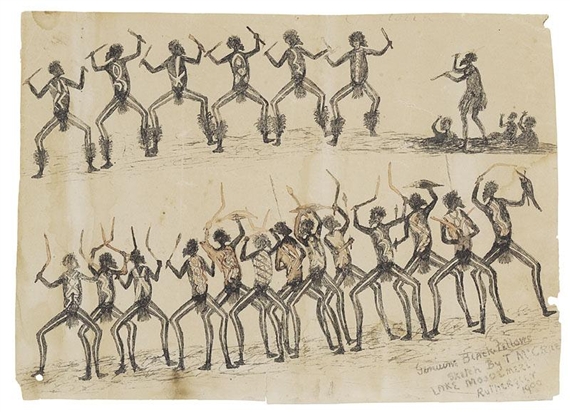 Genuine Blackfellows
Sketch by T McCrae
LAKE MOODEMERE
Rutherglen
1900